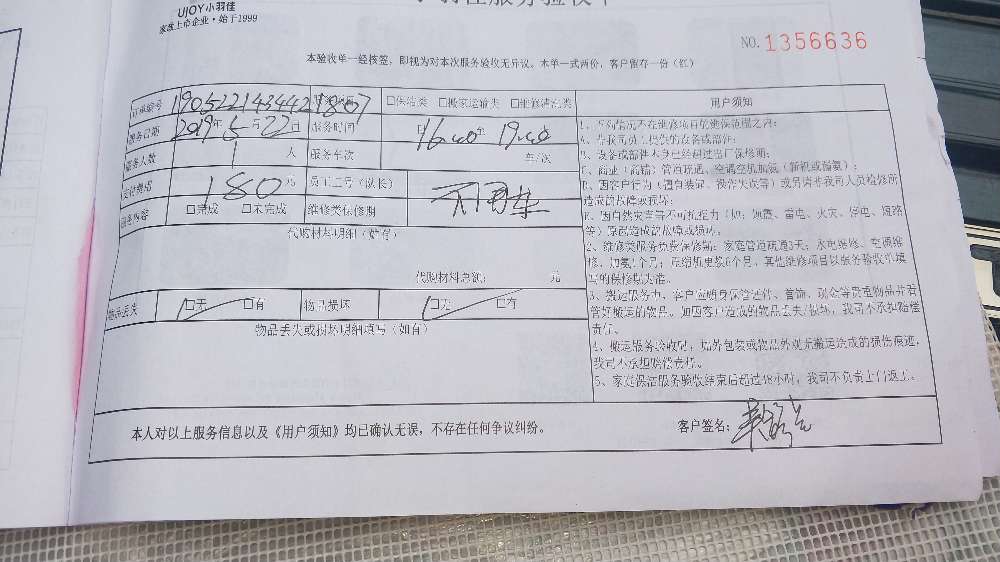 UJOY小羽佳
家政上市企业·始于1999
小羽佳服务验收单
NO.1356636
本验收单一经核签，即视为对本次服务验收无异议。本单一式两份，客户留存一份（红）
订单编号 190522143442 1807 □保洁类 □搬家运输类 □维修清洗类
服务日期 2019年5月22日 服务时间 16:40至19:40
服务人数 1 人 服务车次 车/次
支付费用 180元 员工工号（队长）
服务内容 □完成 □未完成 维修类保修期
代购材料明细（如有）
代购材料总额： 元
物品丢失 □无 □有 物品损坏 □无 □有
物品丢失或损坏明细填写（如有）
本人对以上服务信息以及《用户须知》均已确认无误，不存在任何争议纠纷。
客户签名：
用户须知
1、下列情况不在维修项目的维保范围之内：
A、非我司员工提供的设备或部件；
B、设备或部件本身已经超过出厂保修期；
C、商业（商铺）管道疏通、空调空机加氨（新机或漏氨）；
D、因客户行为（擅自装卸、操作失误等）或另请非我司人员检修所
造成的故障或损坏；
E、因自然灾害等不可抗拒力（如：地震、雷电、火灾、停电、短路
等）原因造成的故障或损坏。
2、维修类服务免费保修期：家庭管道疏通3天；水电维修、空调维
修、加氨1个月；压缩机更换6个月，其他维修项目以服务验收单填
写的保修期为准。
3、搬运服务中，客户应随身保管证件、首饰、现金等贵重物品并看
管好搬运的物品。如因客户造成的物品丢失/损坏，我司不承担赔偿
责任。
4、搬运服务验收后，如外包装或物品外观无搬运造成的损伤痕迹，
我司不承担赔偿责任。
5、家庭保洁服务验收结束后超过48小时，我司不负责上门返工。